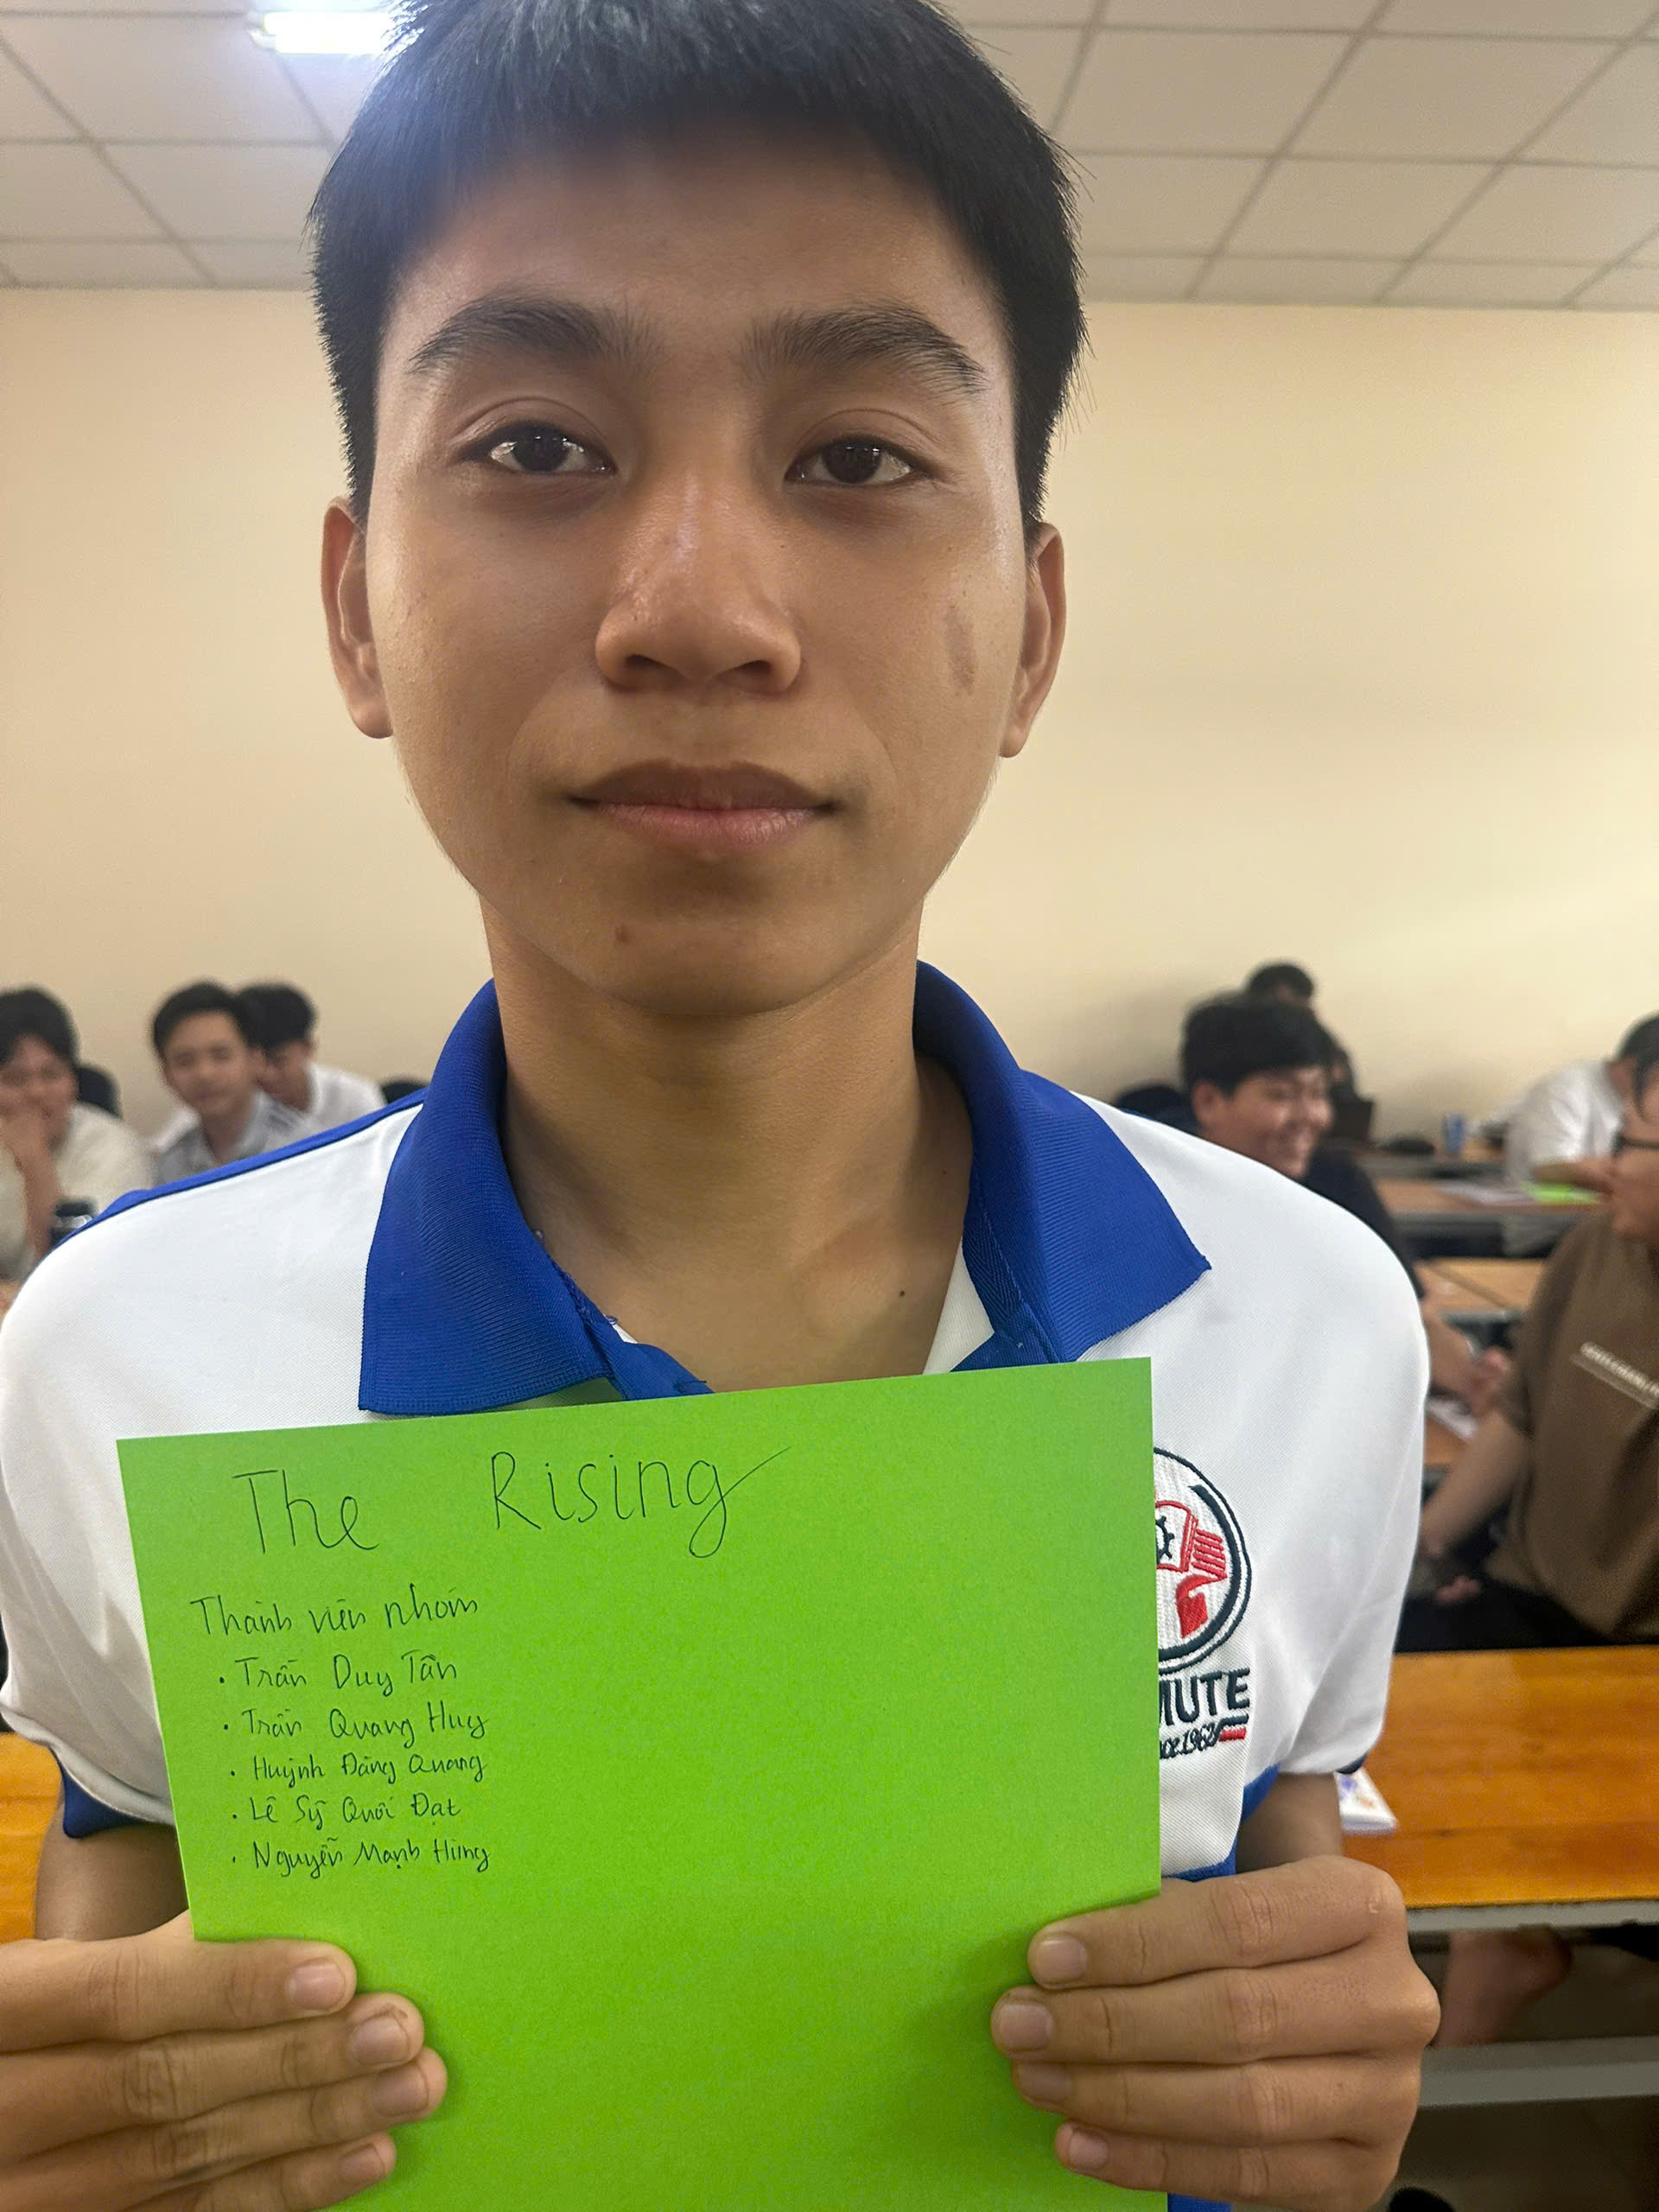 The Rising
Thành viên nhóm
• Trần Duy Tân
• Trần Quang Huy
• Huỳnh Đăng Quang
• Lê Sỹ Quối Đạt
• Nguyễn Mạnh Hùng
MUTE